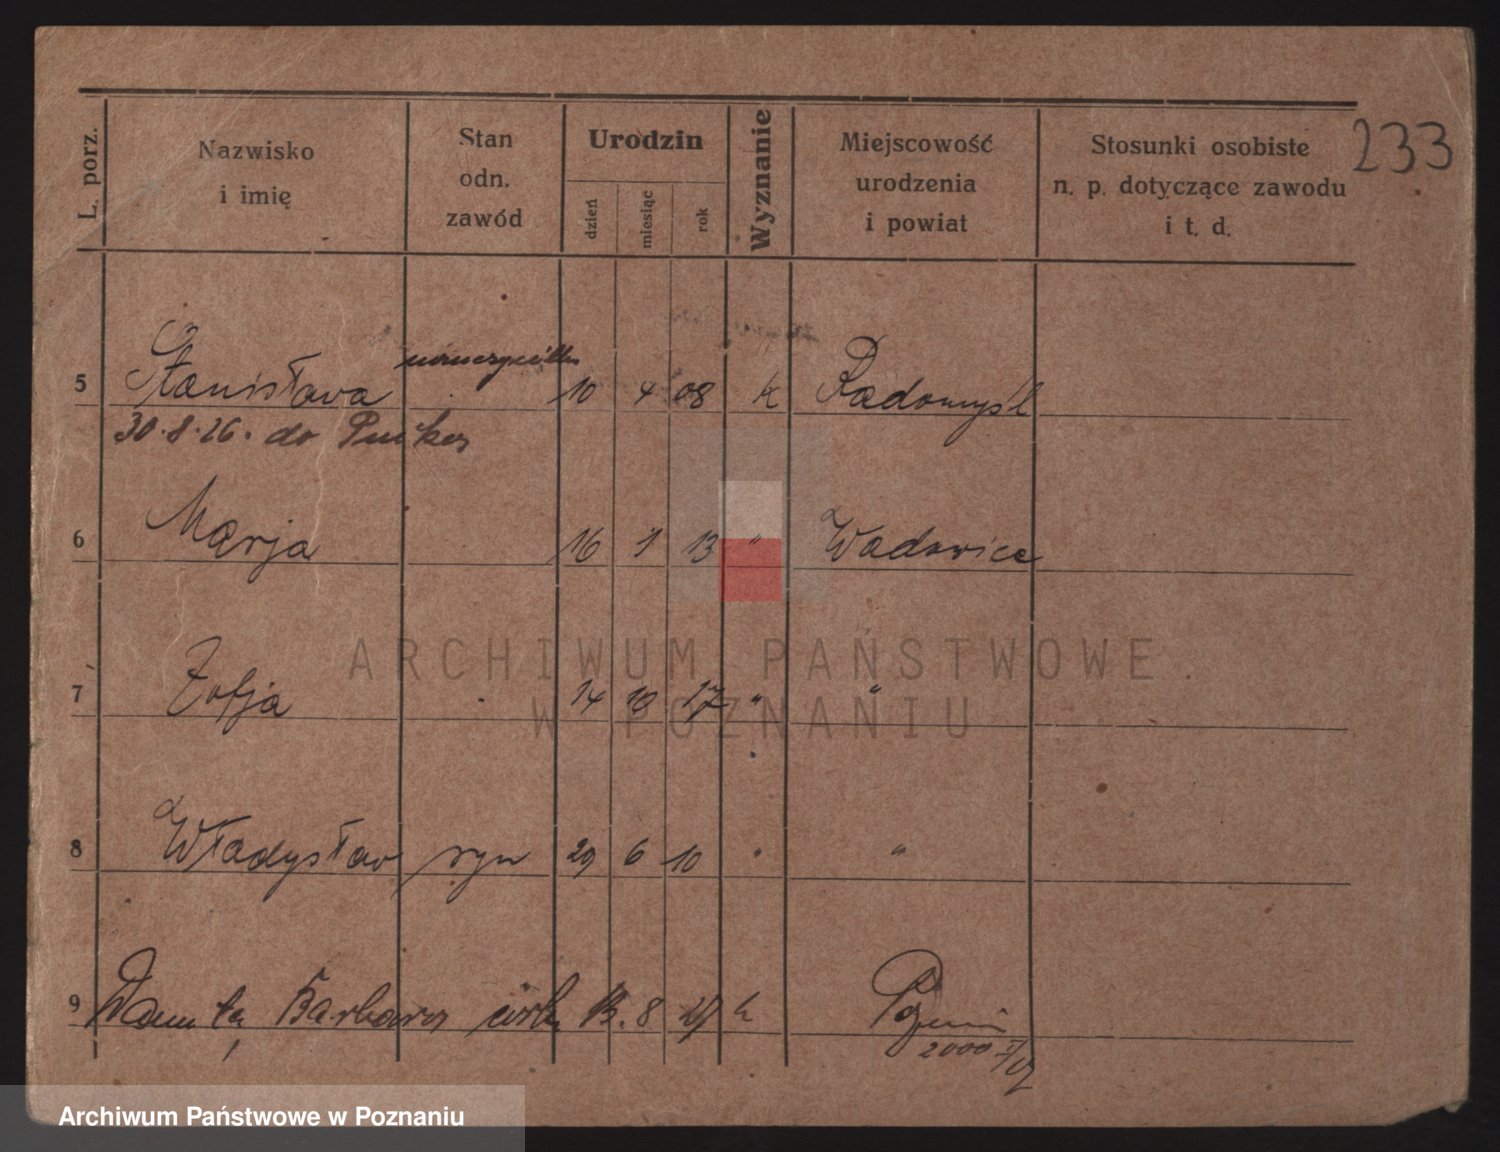 233
L. porz.
Nazwisko
i imię
Stan
odn.
zawód
Urodzin
dzień
miesiąc
rok
Wyznanie
Miejscowość
urodzenia
i powiat
Stosunki osobiste
n. p. dotyczące zawodu
i t. d.
5 Stanisława 10 4 08 k Radomyśl
30.8.26. do
6 Marja 16 1 13 " Wadowice
7 Zofja 14 10 17 " "
8 Władysław syn 29 6 10 " "
9 Danuta Barbara 8 27 k
2000
ARCHIWUM PAŃSTWOWE
W POZNANIU
Archiwum Państwowe w Poznaniu